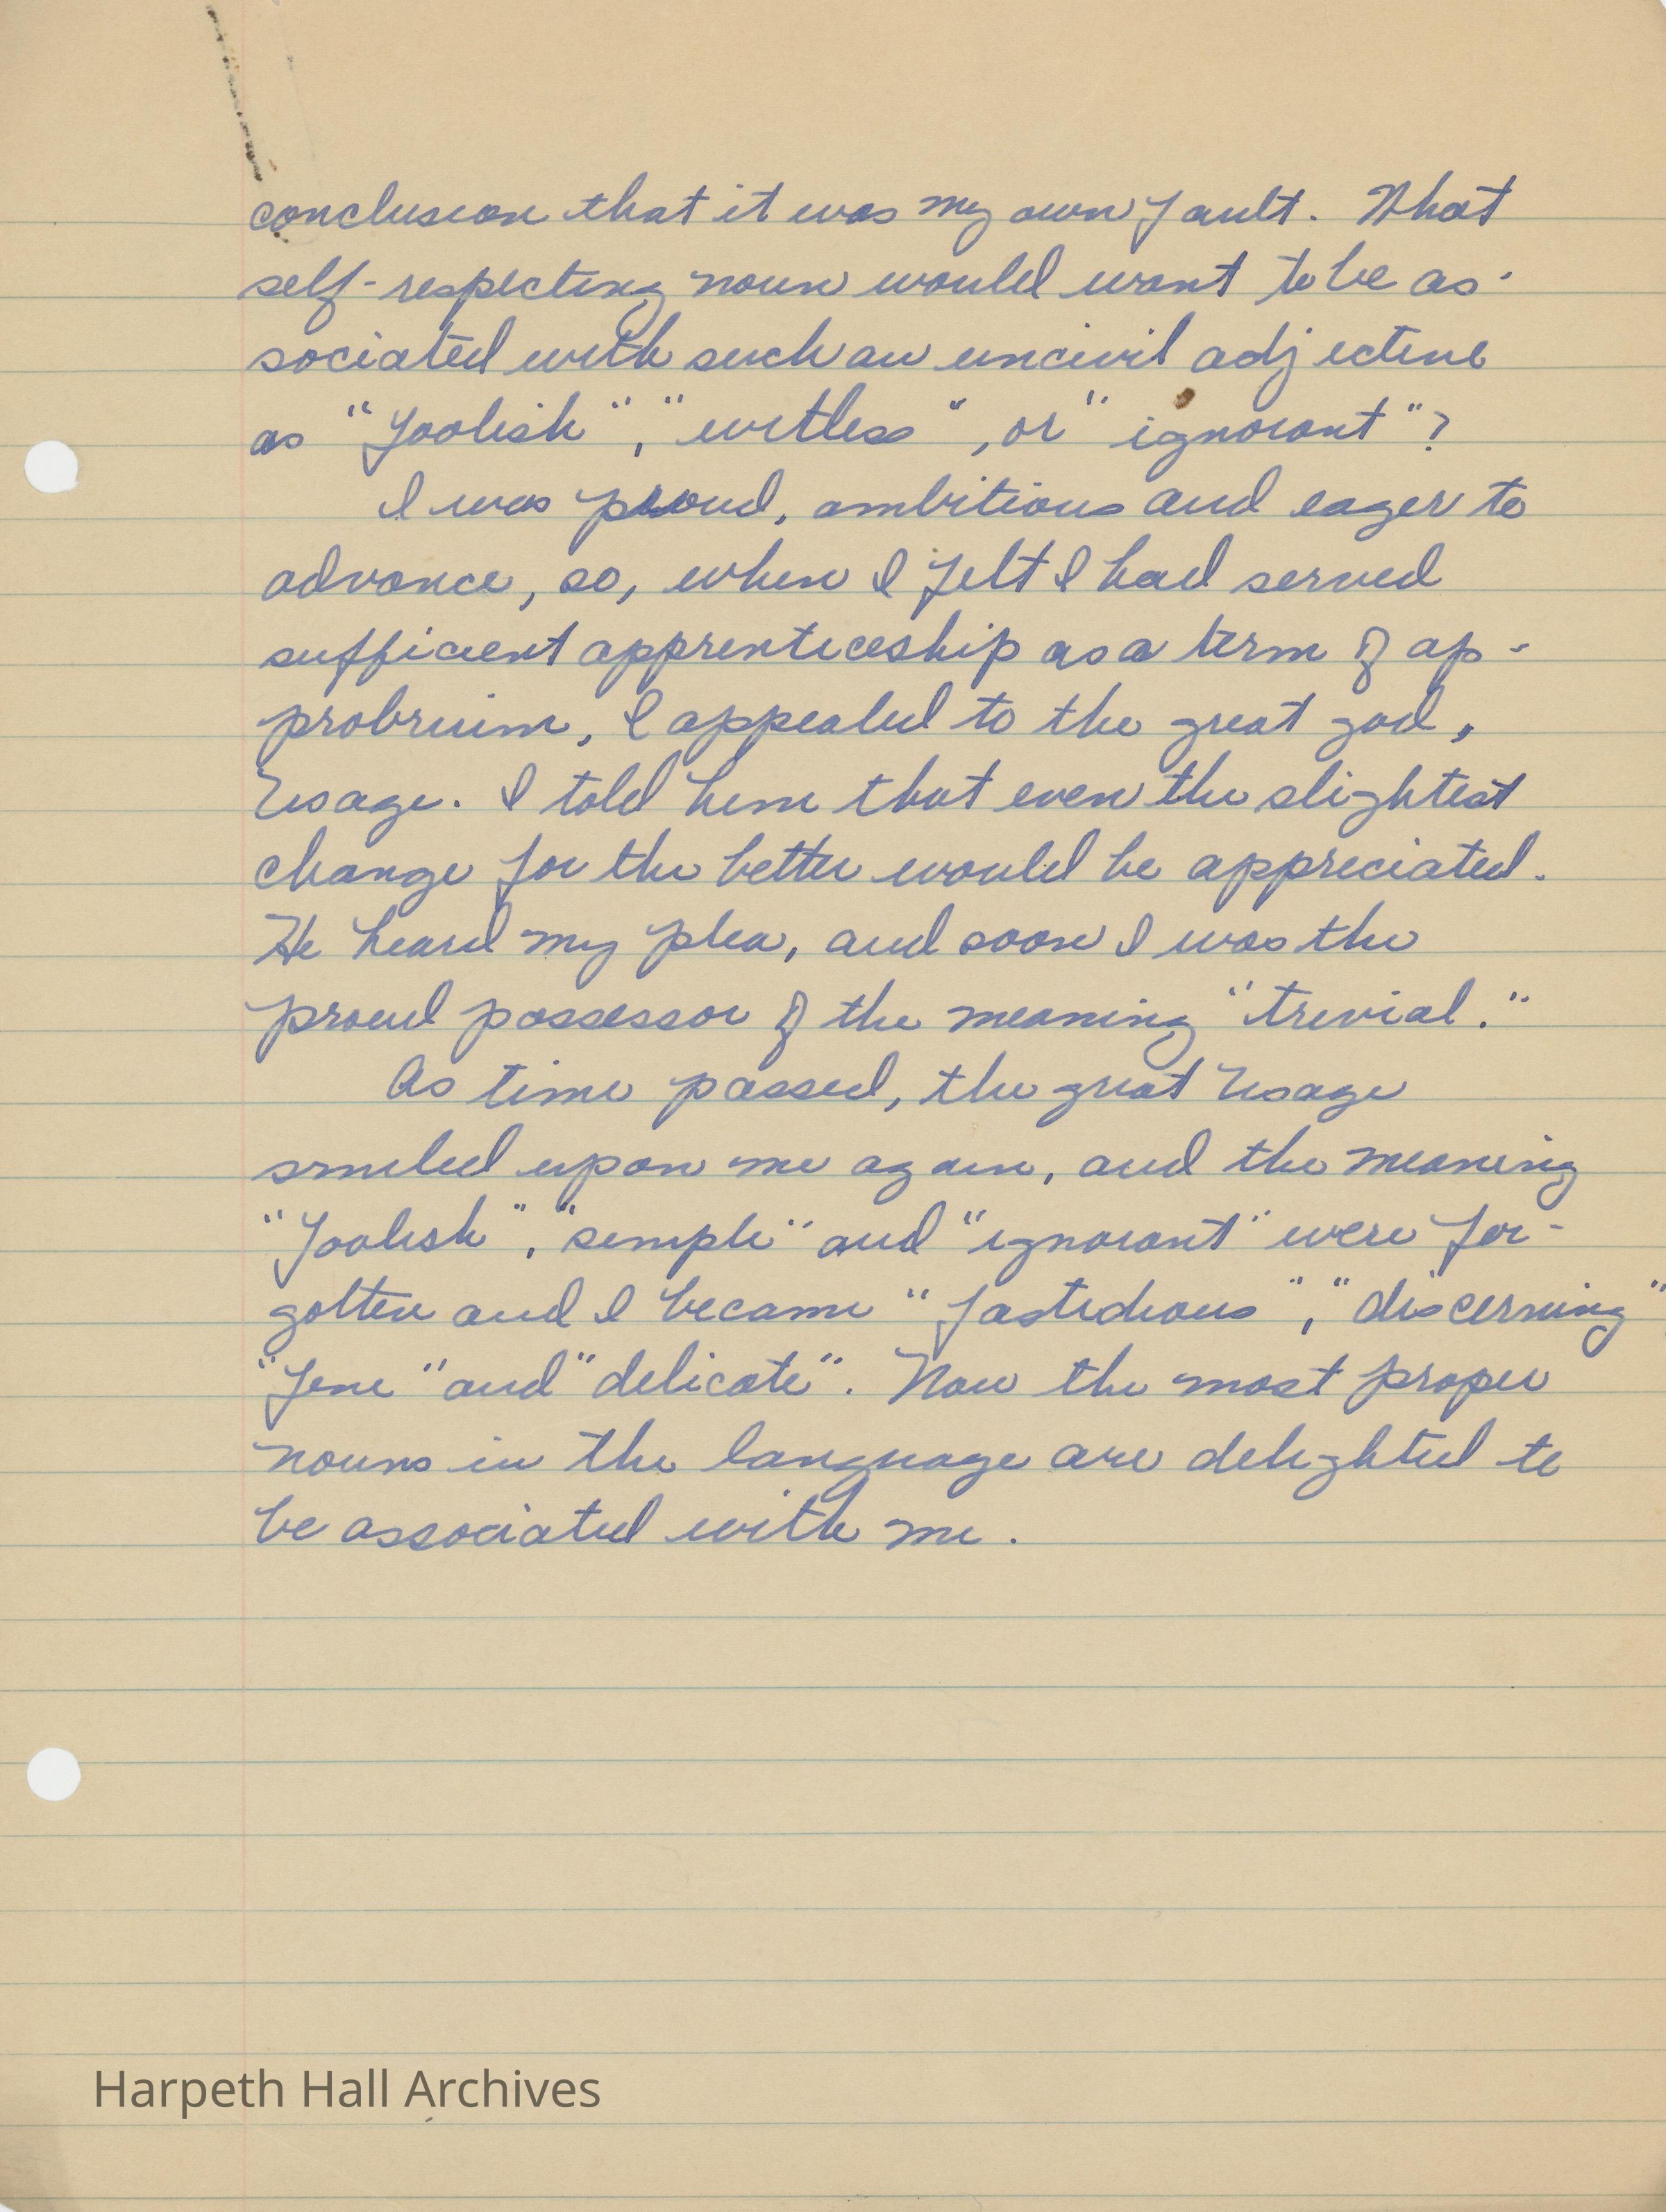 conclusion that it was my own fault. What
self-respecting noun would want to be as-
sociated with such an uncivil adjective
as "foolish", "witless", or "ignorant"?
I was proud, ambitious and eager to
advance, so, when I felt I had served
sufficient apprenticeship as a term of ap-
probrium, I appealed to the great god,
Usage. I told him that even the slightest
change for the better would be appreciated.
He heard my plea, and soon I was the
proud possessor of the meaning "trivial."
As time passed, the great Usage
smiled upon me again, and the meaning
"foolish", "simple" and "ignorant" were for-
gotten and I became "fastidious", "discerning"
"fine" and "delicate". Now the most proper
nouns in the language are delighted to
be associated with me.
Harpeth Hall Archives